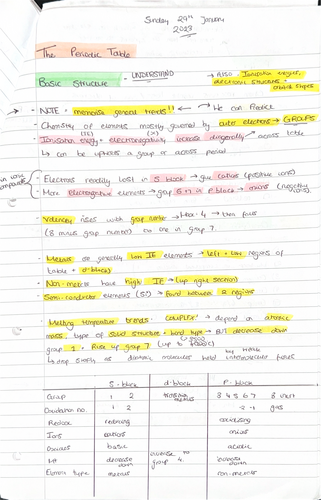 Sunday 29th January
2023
The Periodic Table
Basic Structure - UNDERSTAND
→ Also: Ionisation energies,
electronic structures +
orbital shapes
- NOTE = memorise general trends!! ← we can predict
- Chemistry of elements mostly governed by outer electrons → GROUPS
(IE) (X)
- Ionisation energy + electronegativity increase diagonally → across table
↳ can be upwards a group or across period
- Electrons readily lost in S block → give cations (positive ions)
- More electronegative elements → group 6+7 in P block → anions (negative ions)
in ionic compounds
- Valency rises with group number → Max = 4 → then falls
(8 minus group number) so one in group 7.
- Metals are generally low IE elements → left + low regions of
table + d-block)
- Non-metals have high IE → (up right section)
- Semi-conductor elements (Si) → found between 2 regions
- Melting temperature trends: COMPLEX! → depend on atomic
mass, type of solid structure + bond type → BUT decrease down
group 1 + Rise up group 7 (up to
↳ drop sharply as diatomic molecules held intermolecular forces
by weak
S-block d-block P-block
Group 1 2 transition metals 3 4 5 6 7 8 inert
Oxidation no. 1 2 -2 -1 gas
Redox reducing oxidising
Ions cations anions
Oxides basic acidic
MT decrease down increase to group 4. increase down
Element type metals non-metals